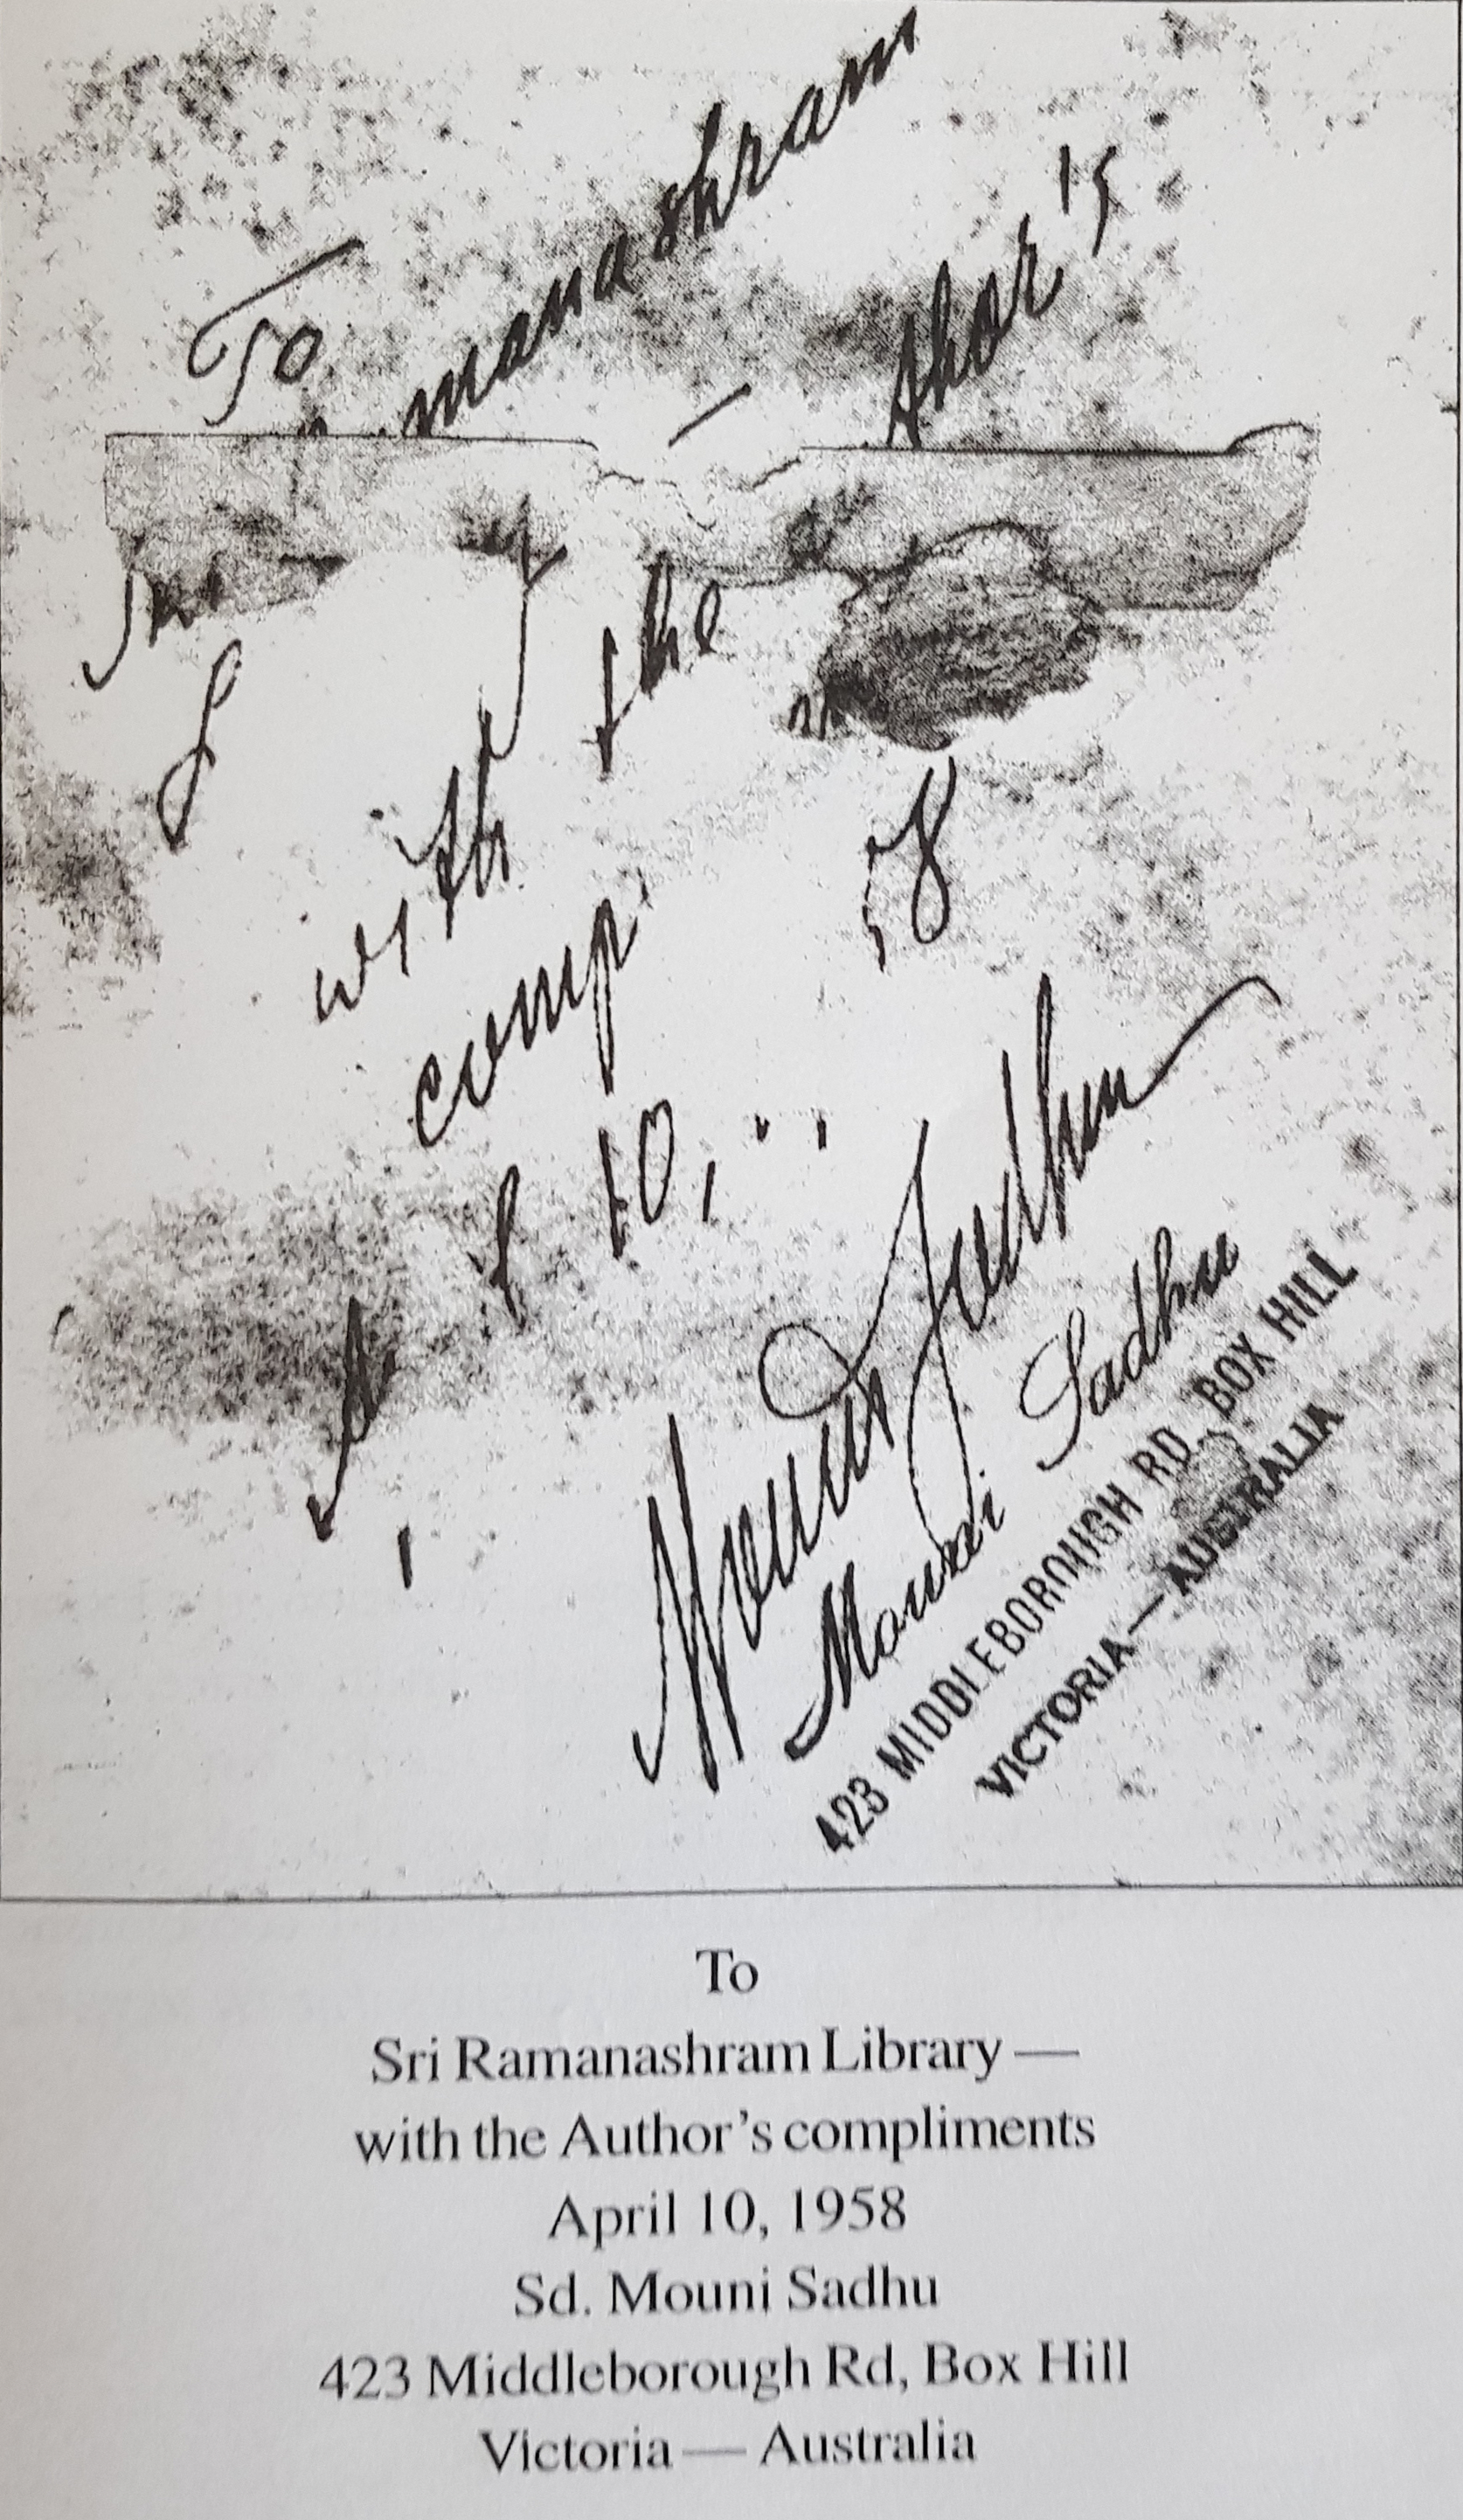 To
manashram
thor's
with the
comp
10,
Mouni Sadhu
Mouni Sadhu
423 MIDDLEBOROUGH RD, BOX HILL
VICTORIA — AUSTRALIA
To
Sri Ramanashram Library —
with the Author's compliments
April 10, 1958
Sd. Mouni Sadhu
423 Middleborough Rd, Box Hill
Victoria — Australia